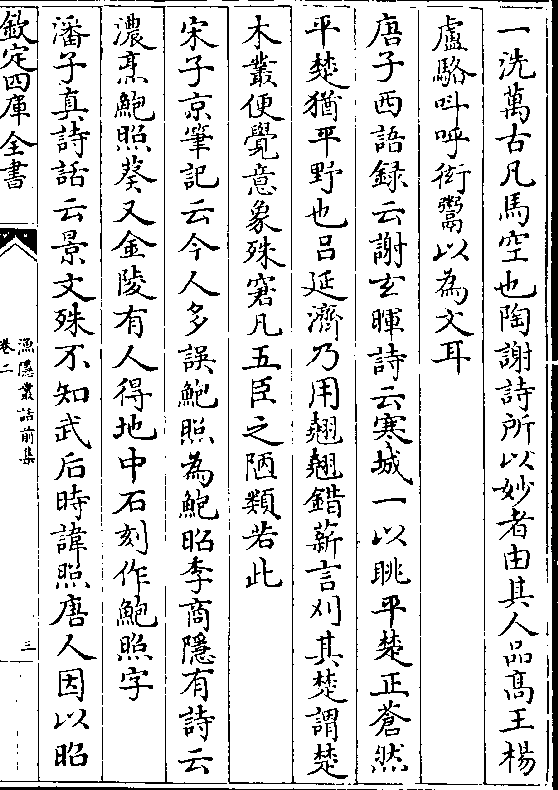 一洗萬古凡馬空也陶謝詩所以妙者由其人品髙王楊
盧駱呌呼衒鬻以為文耳
唐子西語録云謝𤣥暉詩云寒城一以眺平楚正蒼然
平楚猶平野也吕延濟乃用翹翹錯薪言刈其楚謂楚
木叢便覺意象殊窘凡五臣之陋類若此
宋子京筆記云今人多誤鮑照為鮑昭李商隱有詩云
濃烹鮑照葵又金陵有人得地中石刻作鮑照字
潘子真詩話云景文殊不知武后時諱照唐人因以昭
欽定四庫全書
漁隱叢話前集
卷二
三